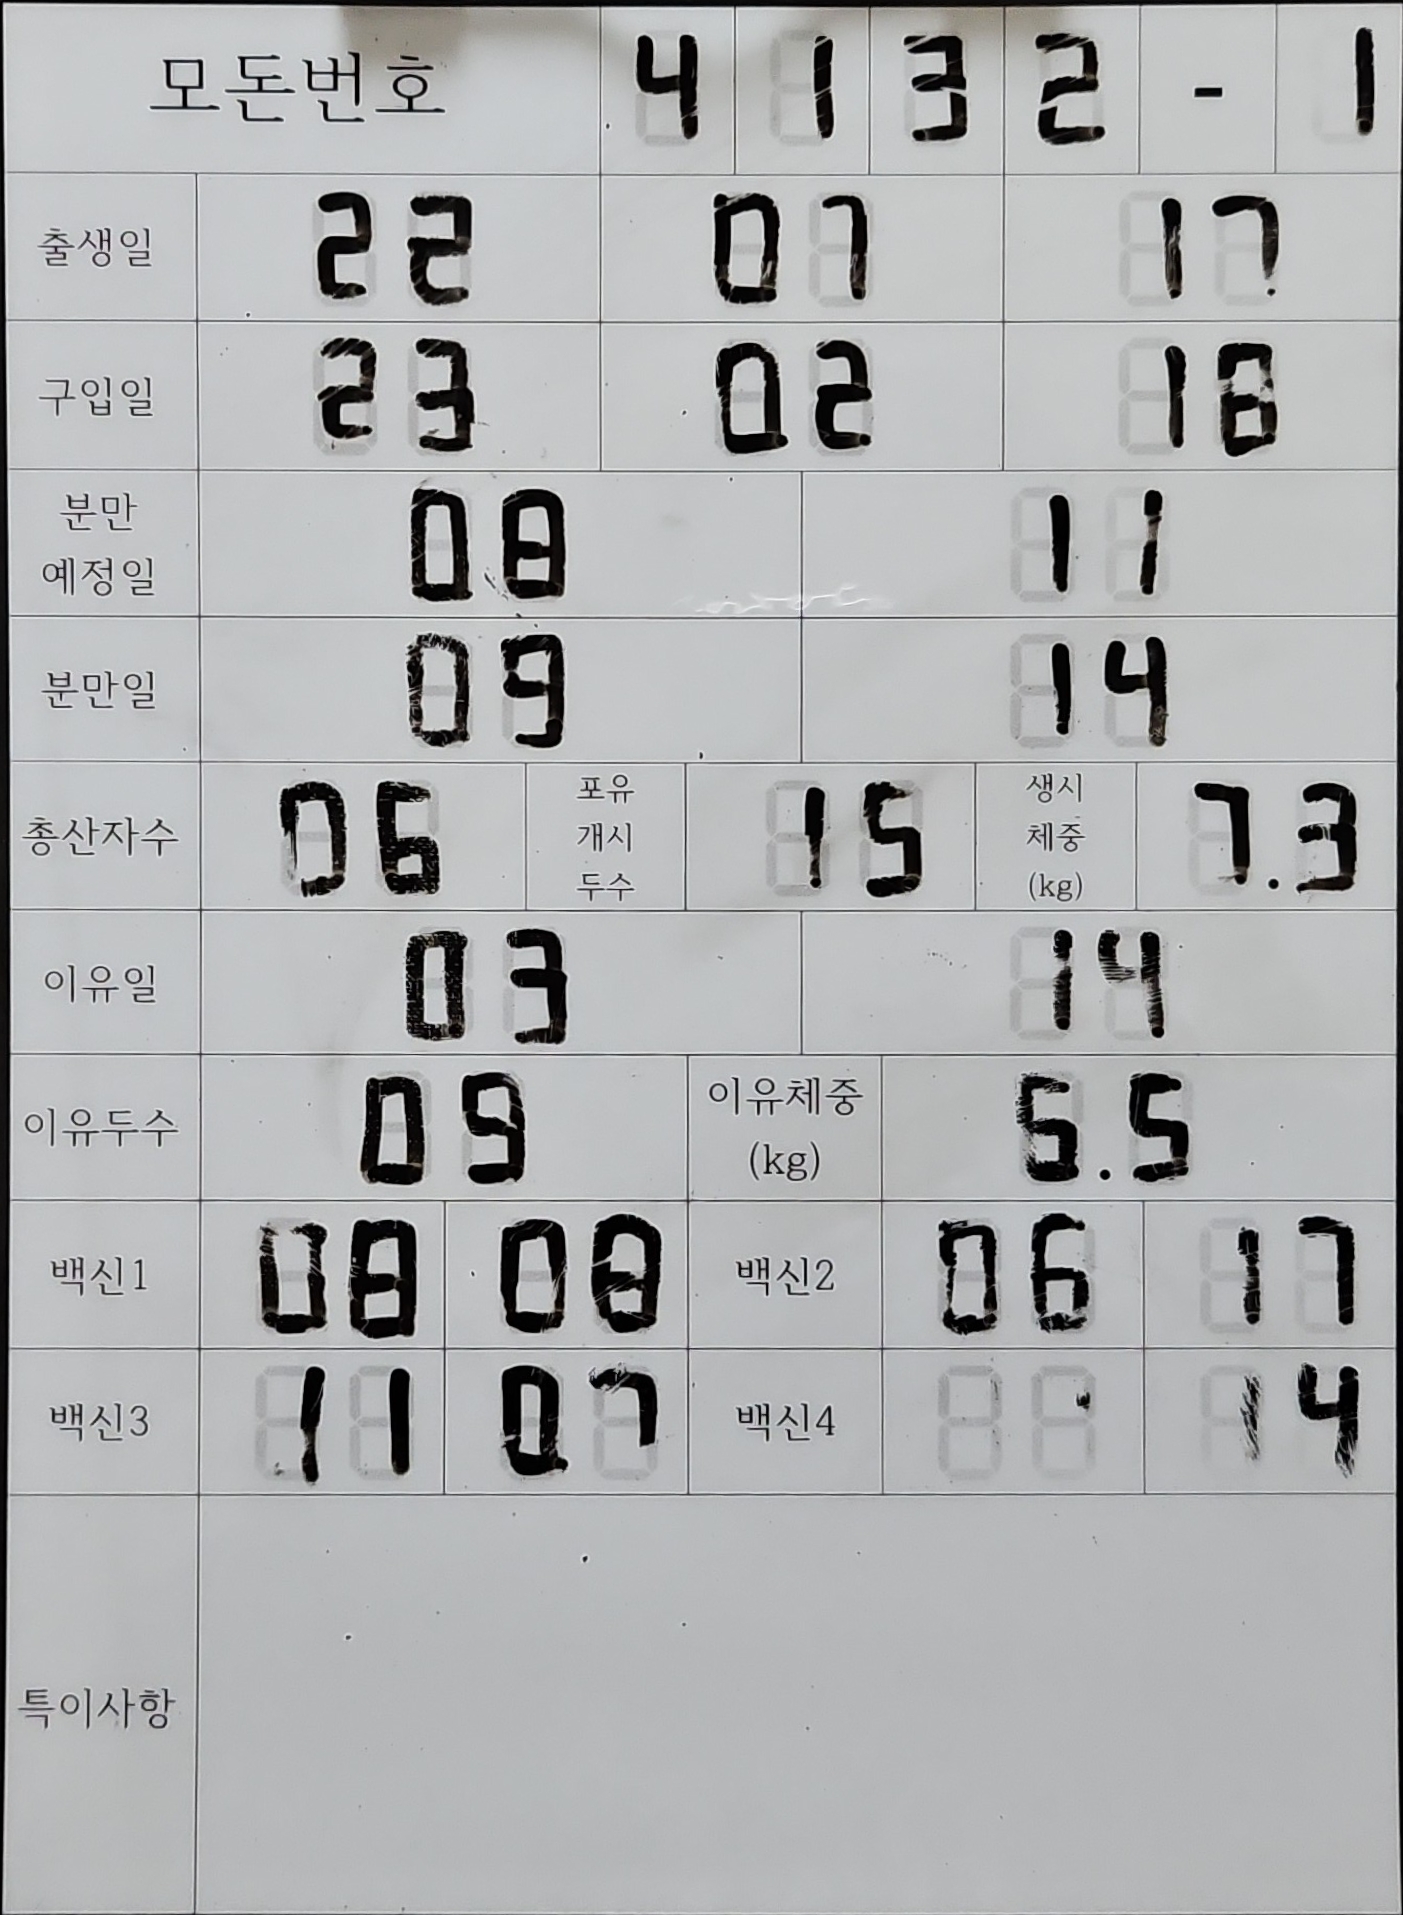 모돈번호 4 1 3 2 - 1
출생일 22 07 17
구입일 23 02 18
분만 예정일 08 11
분만일 09 14
총산자수 06 포유 개시 두수 15 생시 체중 (kg) 7.3
이유일 03 14
이유두수 09 이유체중 (kg) 5.5
백신1 08 08 백신2 06 17
백신3 11 07 백신4 14
특이사항